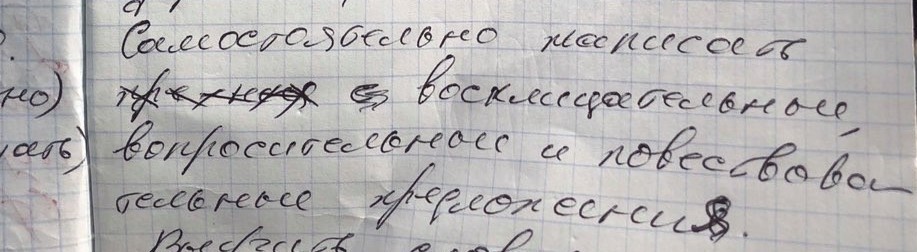 но)
ать)
Самостоятельно написать
восклицательные,
вопросительные и повествова
тельные предложения.